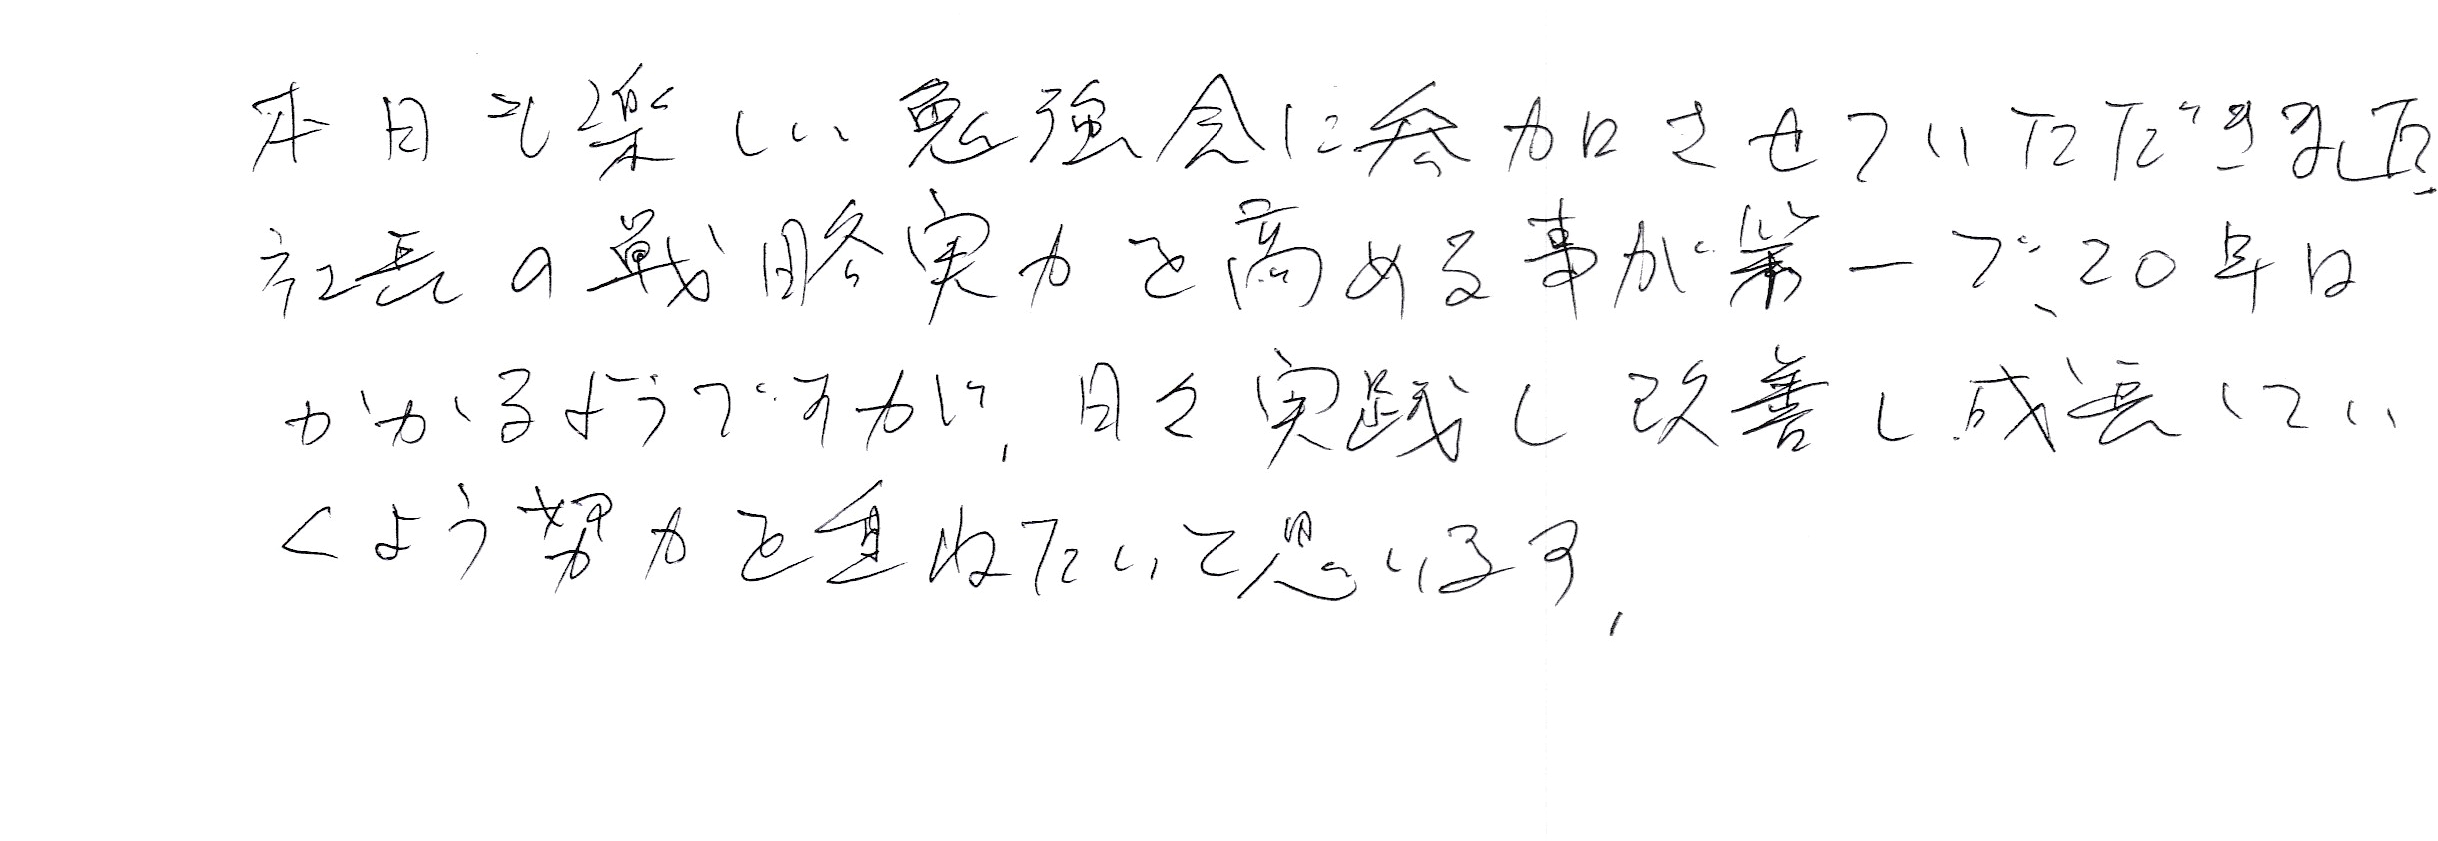 本日も楽しい勉強会に参加させていただきました
社長の戦略実力を高める事が第一で、20年は
かかるようですが、日々実践し改善し成長してい
くよう努力を重ねたいと思います。